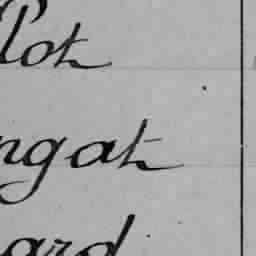 lot
ngat
ard